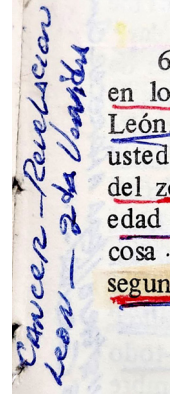 Cancer - Revelacion
Leon - 2da Venida
6
en lo
León
usted
del zo
edad
cosa
segun